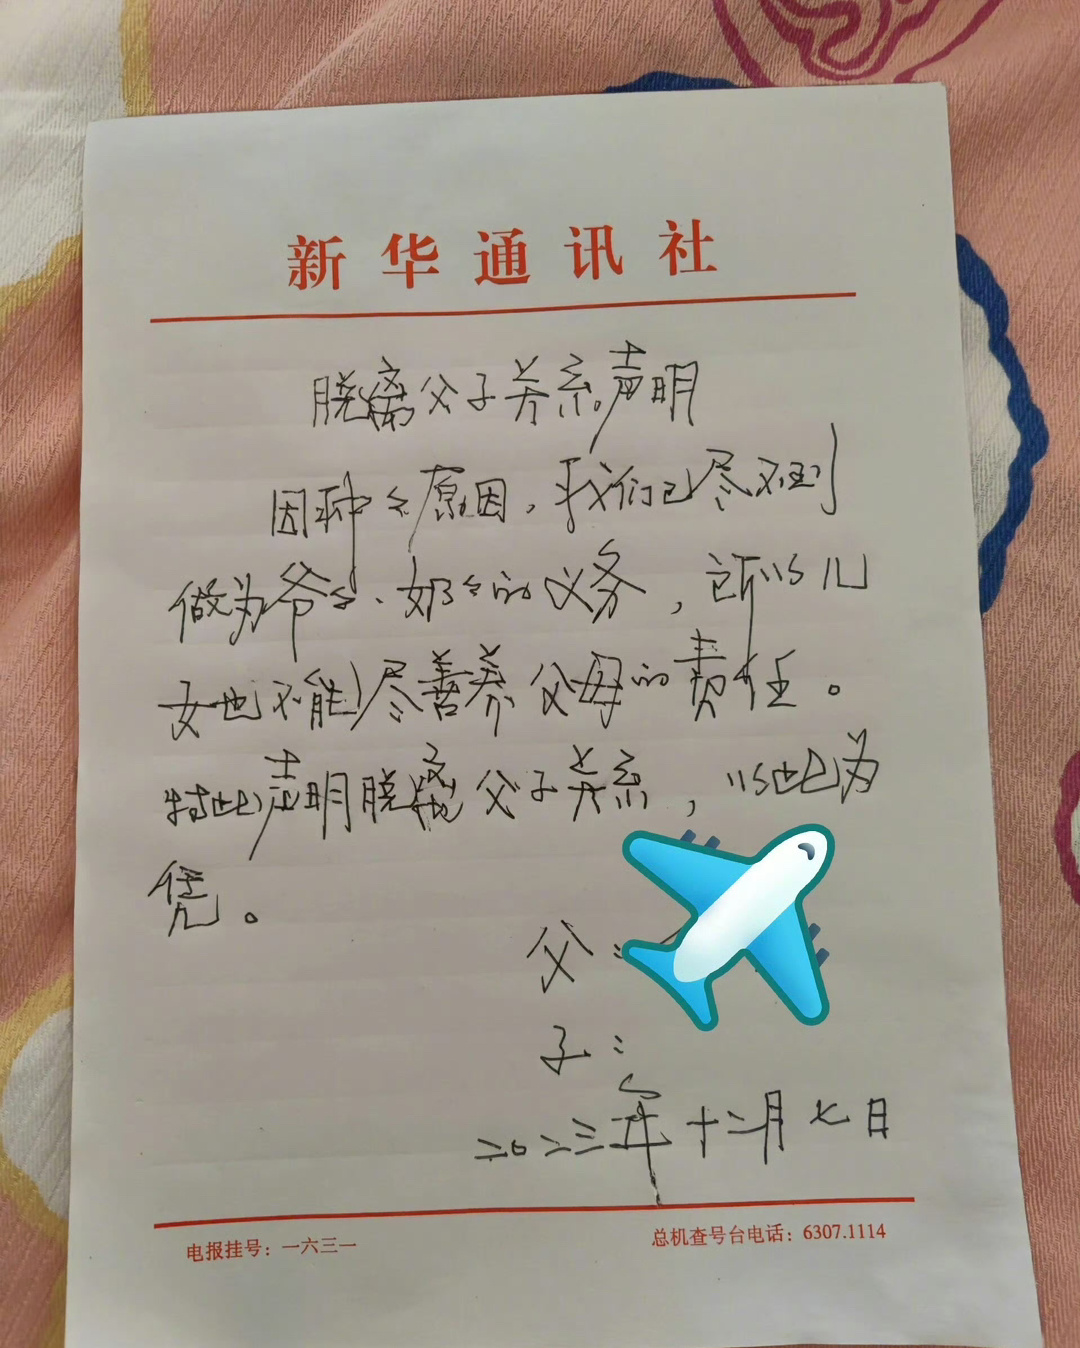 新华通讯社
脱离父子关系声明
因种々原因，我们已尽不到
做为爷々、奶々的义务，所以儿
女也不能尽善养父母的责任。
特此声明脱离父子关系，以此为
凭。
父：
子：
二〇二三年十二月七日
电报挂号：一六三一
总机查号台电话：6307.1114